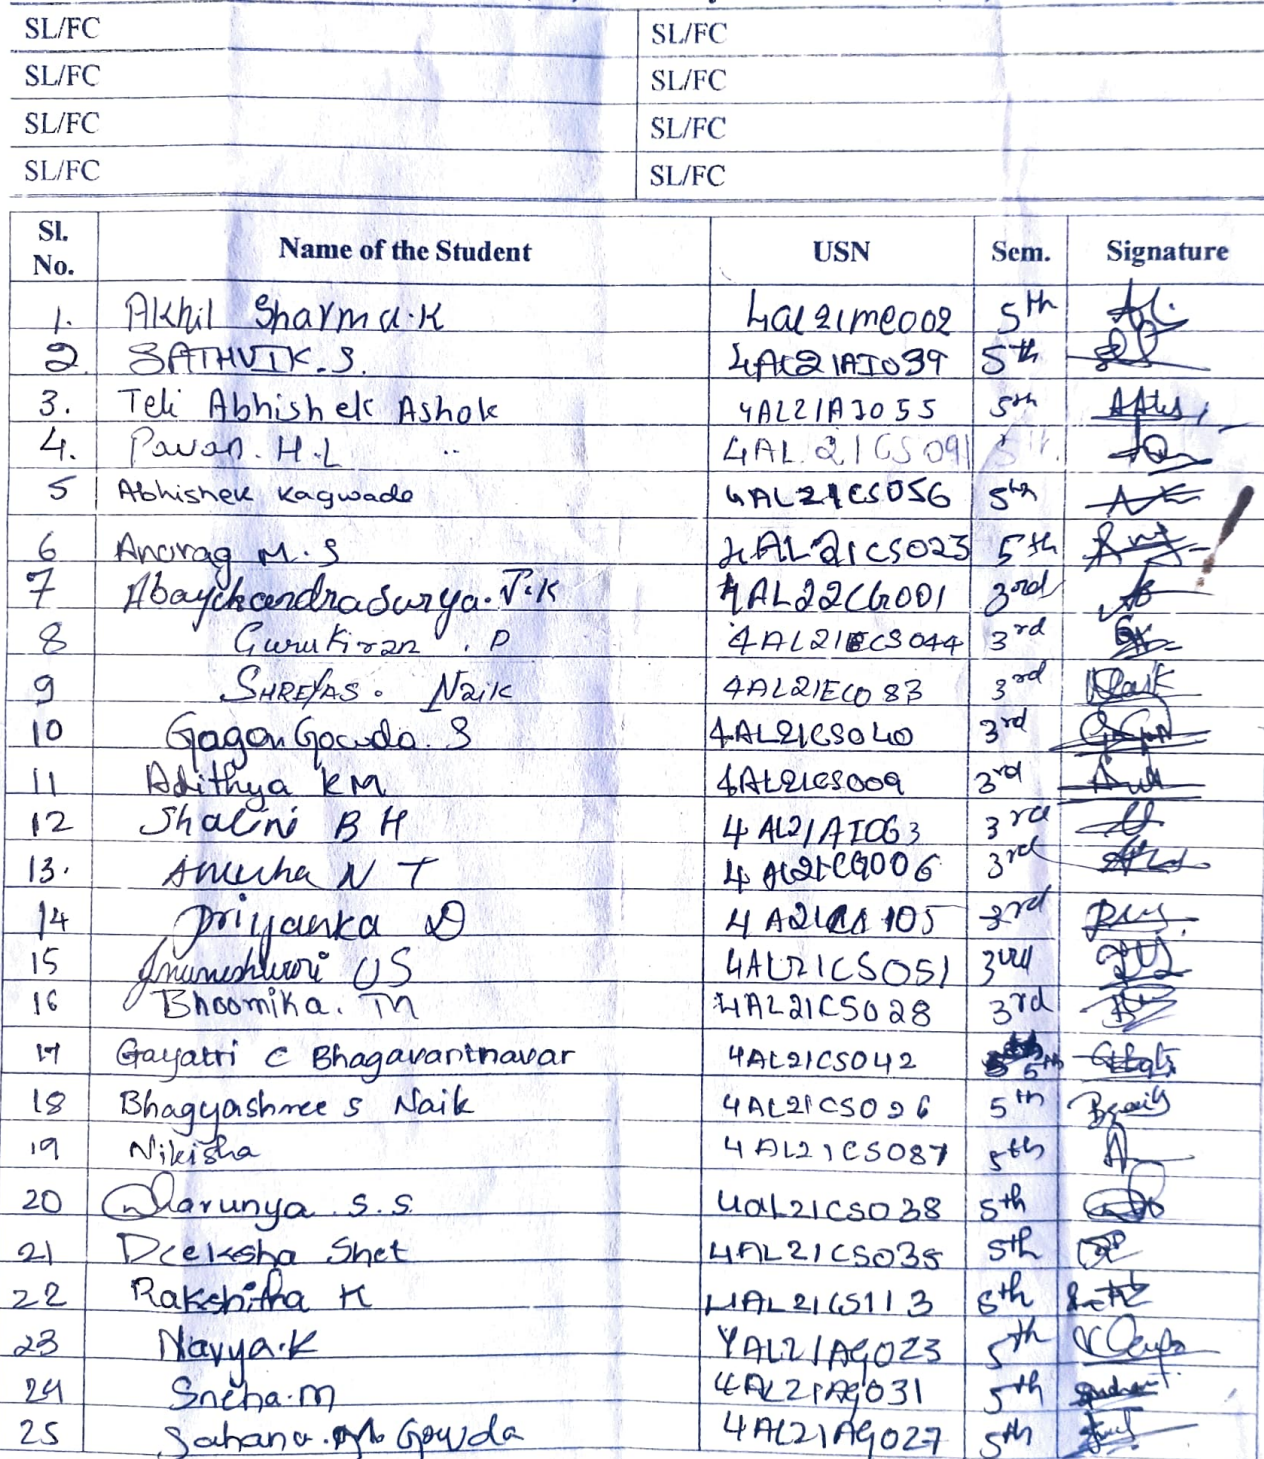 SL/FC SL/FC
SL/FC SL/FC
SL/FC SL/FC
SL/FC SL/FC
Sl. No. Name of the Student USN Sem. Signature
1. Akhil Sharma.K 4al21me002 5th
2. SATHVIK.S. 4AL21AI039 5th
3. Teli Abhishek Ashok 4AL21AI055 5th
4. Pavan.H.L 4AL21CS091 5th
5 Abhishek Kagwade 4AL21CS056 5th
6 Anurag M.S 4AL21CS023 5th
7 Abaychandrasurya.J.K 4AL22CG001 3rd
8 Gurukiran.P 4AL21ECS044 3rd
9 SHREYAS. Naik 4AL21EC083 3rd
10 Gagan Gowda.S 4AL21CS040 3rd
11 Adithya KM 4AL21CS009 3rd
12 Shalini B H 4AL21AI063 3rd
13. Anusha N T 4AL21CG006 3rd
14 Priyanka D 3rd
15 US 4AL21CS051 3rd
16 Bhoomika.M 4AL21CS028 3rd
17 Gayatri C Bhagavantnavar 4AL21CS042 5th
18 Bhagyashree S Naik 4AL21CS026 5th
19 Nikisha 4AL21CS087 5th
20 Dharunya.S.S 4al21CS038 5th
21 Deeksha Shet 4AL21CS035 5th
22 Rakshitha K 4AL21CS113 5th
23 Navya.K 4AL21AG023 5th
24 Sneha.M 4AL21AG031 5th
25 Sahana. Gowda 4AL21AG027 5th